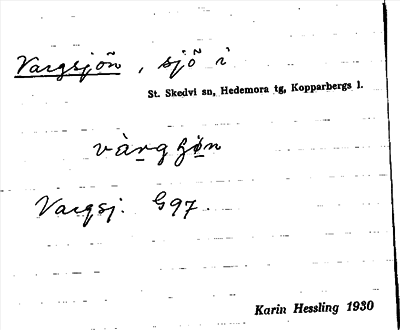 Vargsjön, sjö i
St. Skedvi sn, Hedemora tg, Kopparbergs l.
Vargsj. G97.
Karin Hessling 1930